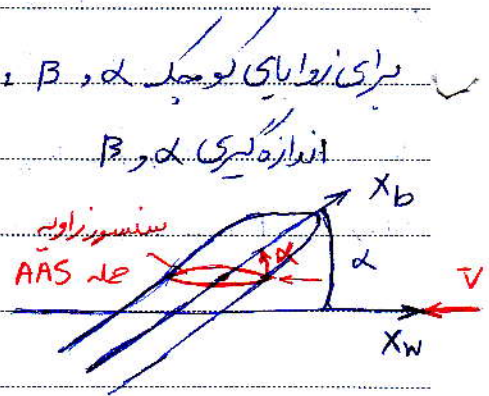 برای زوایای کوچک α و β ،
اندازه گیری α و β
X_b
سنسور زاویه
حمله AAS
α
α
V
X_w